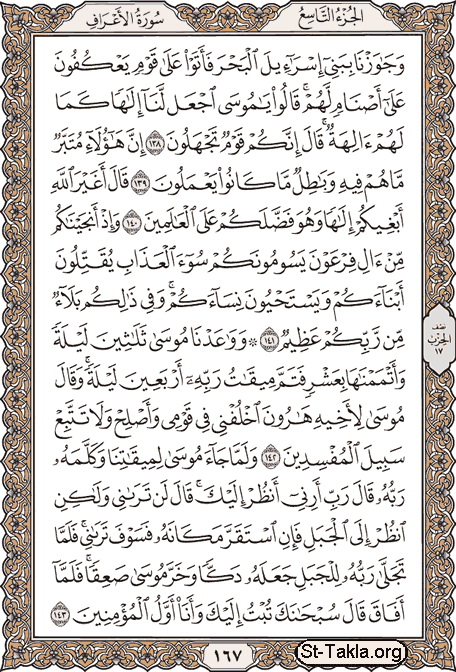 الجُزْءُ التَّاسِعُ
سُورَةُ الأَعْرَافِ
وَجَٰوَزْنَا بِبَنِيٓ إِسْرَٰٓءِيلَ ٱلْبَحْرَ فَأَتَوْا۟ عَلَىٰ قَوْمٍ يَعْكُفُونَ
عَلَىٰٓ أَصْنَامٍ لَّهُمْ ۚ قَالُوا۟ يَٰمُوسَى ٱجْعَل لَّنَآ إِلَٰهًا كَمَا
لَهُمْ ءَالِهَةٌ ۚ قَالَ إِنَّكُمْ قَوْمٌ تَجْهَلُونَ ١٣٨ إِنَّ هَٰٓؤُلَآءِ مُتَبَّرٌ
مَّا هُمْ فِيهِ وَبَٰطِلٌ مَّا كَانُوا۟ يَعْمَلُونَ ١٣٩ قَالَ أَغَيْرَ ٱللَّهِ
أَبْغِيكُمْ إِلَٰهًا وَهُوَ فَضَّلَكُمْ عَلَى ٱلْعَٰلَمِينَ ١٤٠ وَإِذْ أَنجَيْنَٰكُم
مِّنْ ءَالِ فِرْعَوْنَ يَسُومُونَكُمْ سُوٓءَ ٱلْعَذَابِ ۖ يُقَتِّلُونَ
أَبْنَآءَكُمْ وَيَسْتَحْيُونَ نِسَآءَكُمْ ۚ وَفِى ذَٰلِكُم بَلَآءٌ
مِّن رَّبِّكُمْ عَظِيمٌ ١٤١ ۞ وَوَٰعَدْنَا مُوسَىٰ ثَلَٰثِينَ لَيْلَةً
وَأَتْمَمْنَٰهَا بِعَشْرٍ فَتَمَّ مِيقَٰتُ رَبِّهِۦٓ أَرْبَعِينَ لَيْلَةً ۚ وَقَالَ
مُوسَىٰ لِأَخِيهِ هَٰرُونَ ٱخْلُفْنِى فِى قَوْمِى وَأَصْلِحْ وَلَا تَتَّبِعْ
سَبِيلَ ٱلْمُفْسِدِينَ ١٤٢ وَلَمَّا جَآءَ مُوسَىٰ لِمِيقَٰتِنَا وَكَلَّمَهُۥ
رَبُّهُۥ قَالَ رَبِّ أَرِنِىٓ أَنظُرْ إِلَيْكَ ۚ قَالَ لَن تَرَىٰنِى وَلَٰكِنِ
ٱنظُرْ إِلَى ٱلْجَبَلِ فَإِنِ ٱسْتَقَرَّ مَكَانَهُۥ فَسَوْفَ تَرَىٰنِى ۚ فَلَمَّا
تَجَلَّىٰ رَبُّهُۥ لِلْجَبَلِ جَعَلَهُۥ دَكًّا وَخَرَّ مُوسَىٰ صَعِقًا ۚ فَلَمَّآ
أَفَاقَ قَالَ سُبْحَٰنَكَ تُبْتُ إِلَيْكَ وَأَنَا۠ أَوَّلُ ٱلْمُؤْمِنِينَ ١٤٣
نصف
الحزب
١٧
١٦٧
St-Takla.org